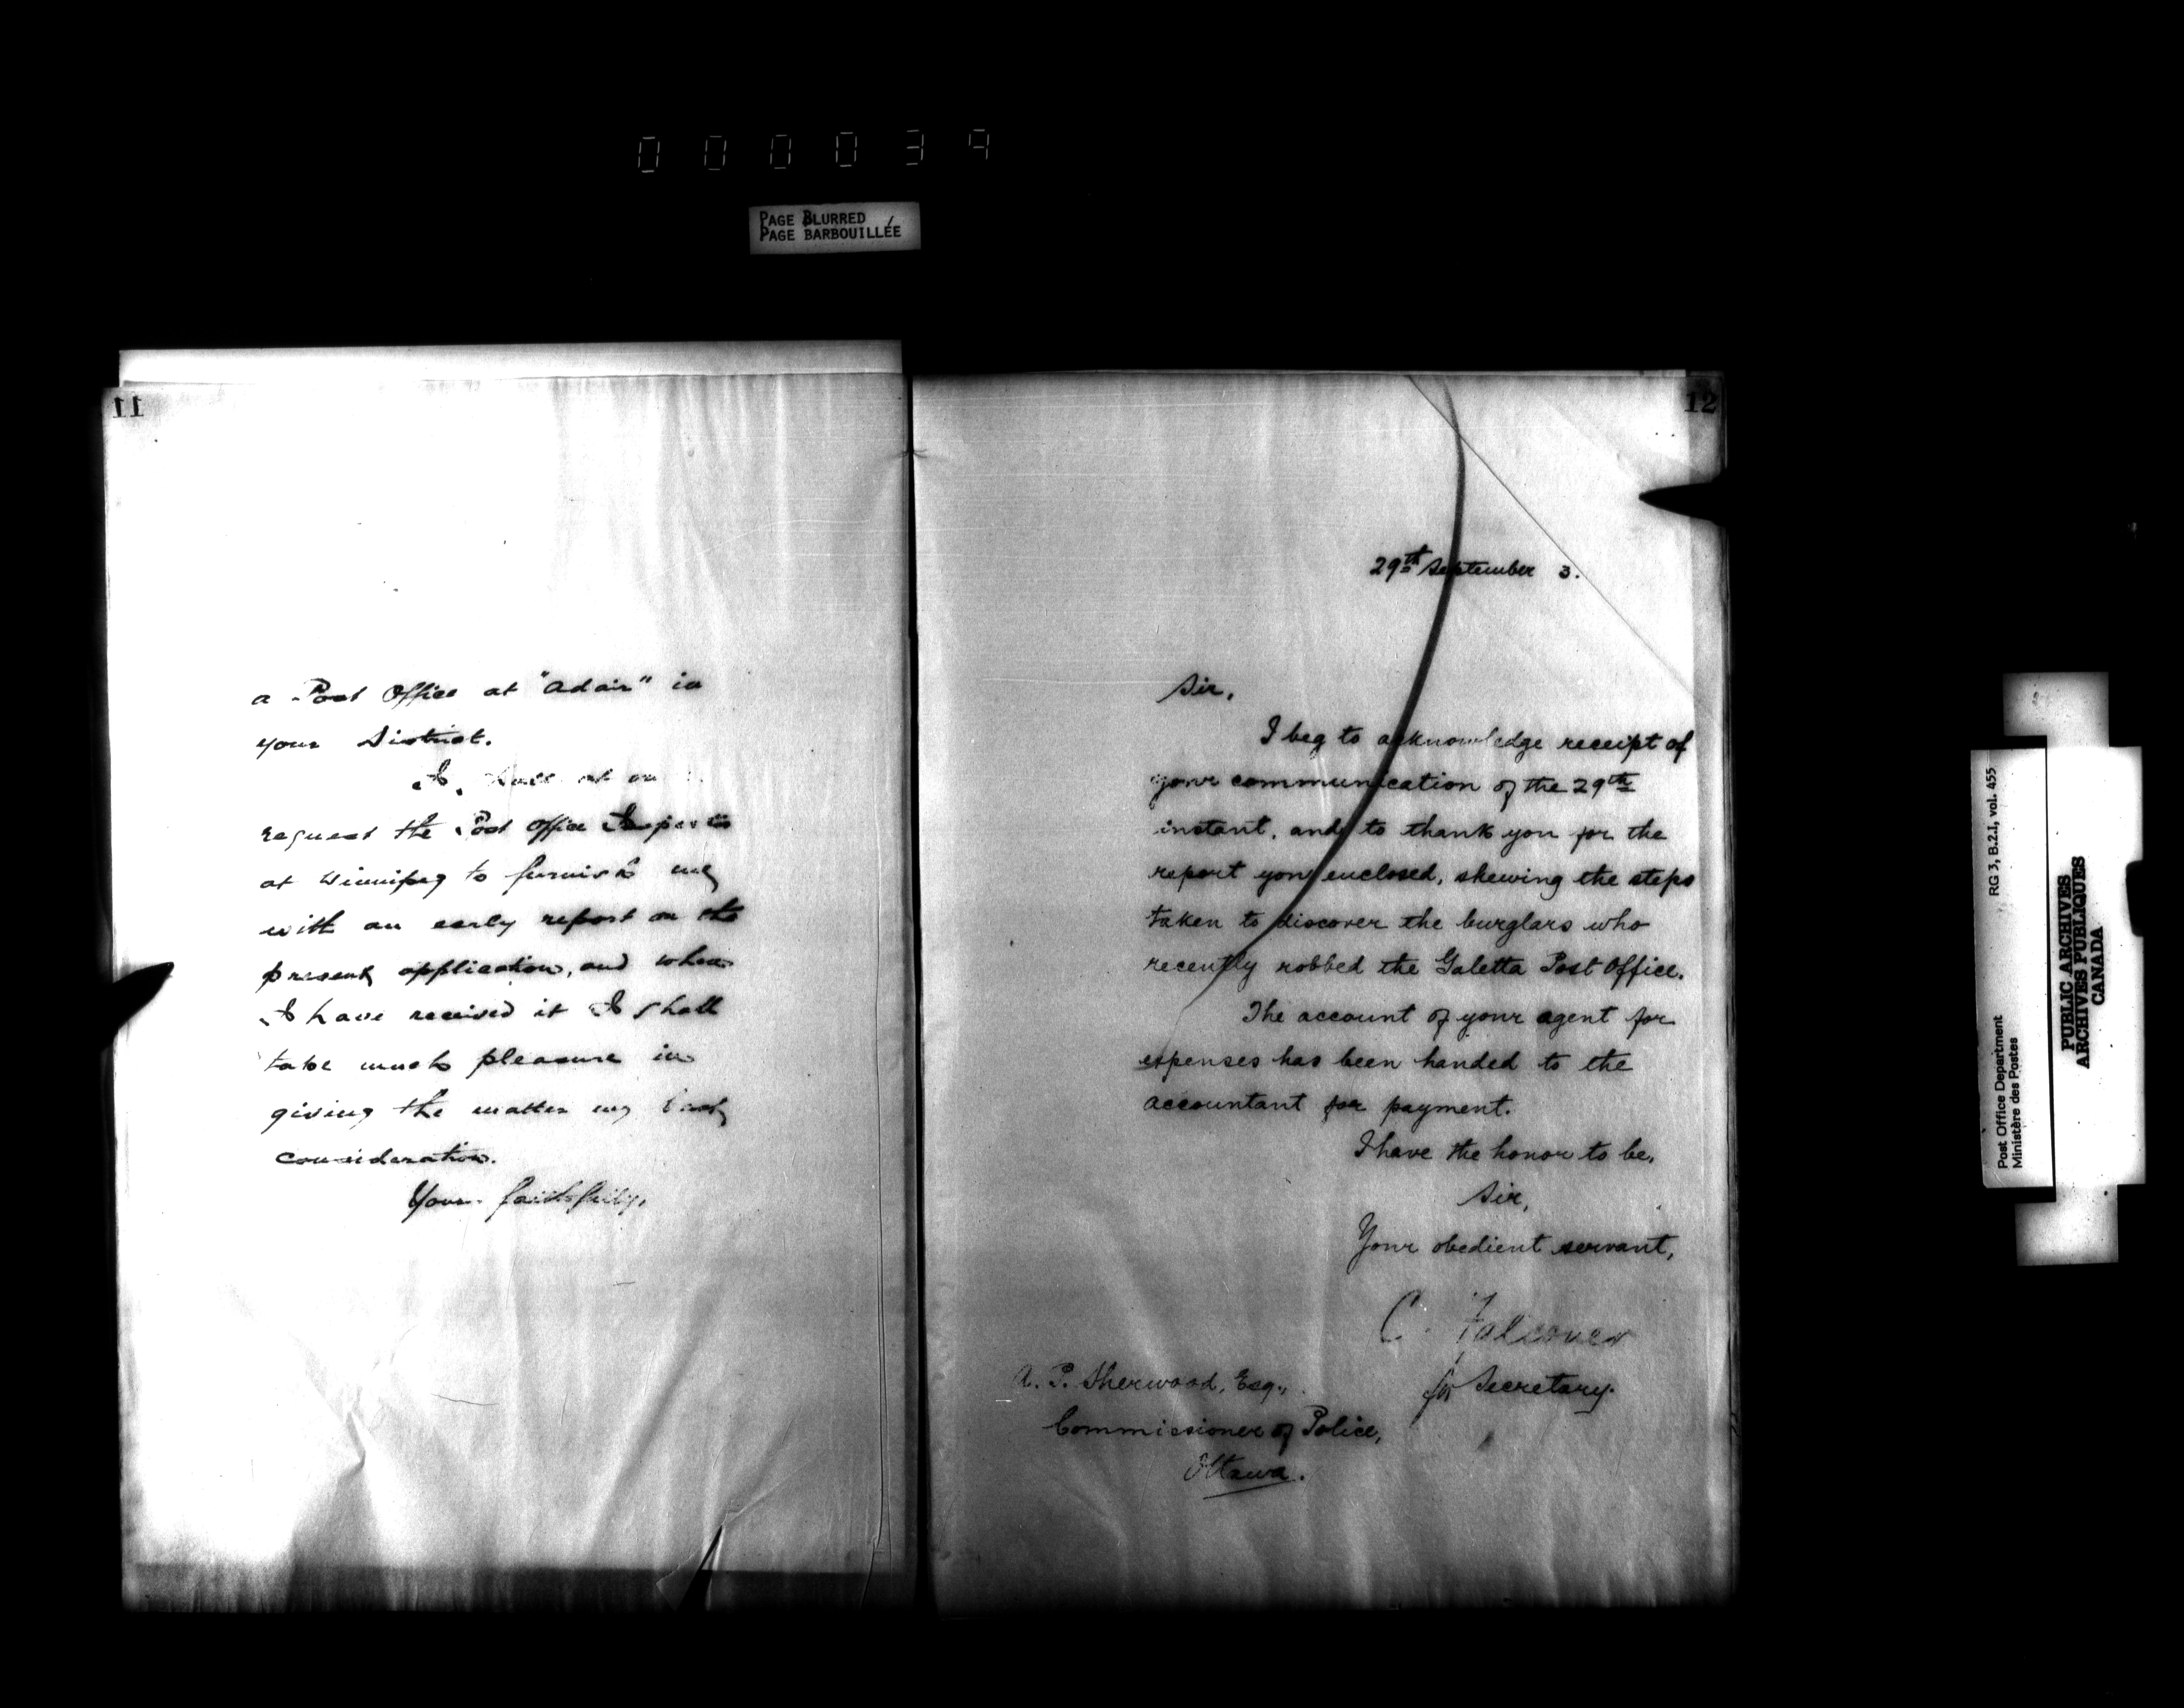 000039
PAGE BLURRED
PAGE BARBOUILLÉE
11
a Post Office at "Adair" in
your District.
I shall at on
request the Post Office Inspector
at Winnipeg to furnish me
with an early report on the
present application, and when
I have received it I shall
take much pleasure in
giving the matter my best
consideration.
Yours faithfully,
12
29th September 3.
Sir,
I beg to acknowledge receipt of
your communication of the 29th
instant, and to thank you for the
report you enclosed, shewing the steps
taken to discover the burglars who
recently robbed the Galetta Post Office.
The account of your agent for
expenses has been handed to the
accountant for payment.
I have the honor to be,
Sir,
Your obedient servant,
C. Falconer
for Secretary.
A. P. Sherwood, Esq.,
Commissioner of Police,
Ottawa.
RG 3, B.2.I, vol. 455
Post Office Department
Ministère des Postes
PUBLIC ARCHIVES
ARCHIVES PUBLIQUES
CANADA